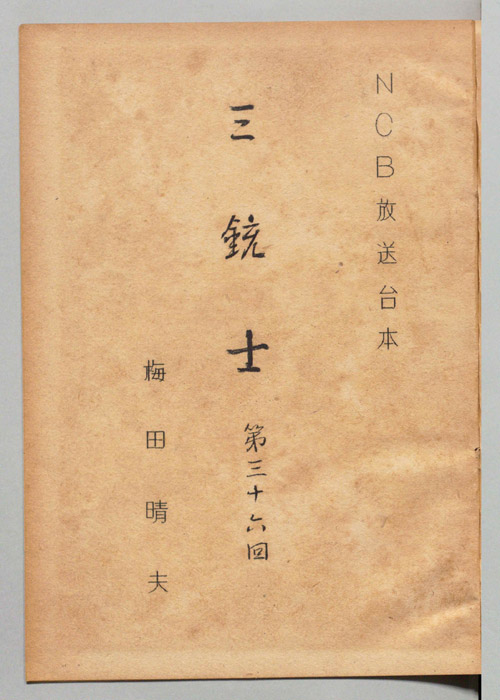 NCB放送台本
三銃士 第三十六回
梅田晴夫